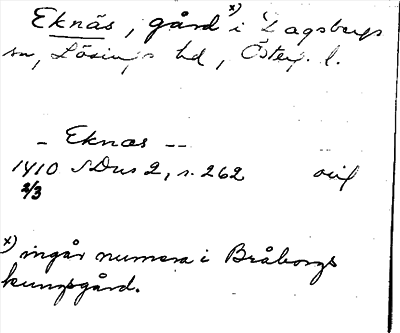 Eknäs, gård x) i Dagsbergs
sn, Lösings hd, Österg. l.
– Eknæs – –
1410 SDns 2, s. 262
2/3
x) ingår numera i Bråborgs
kungsgård.